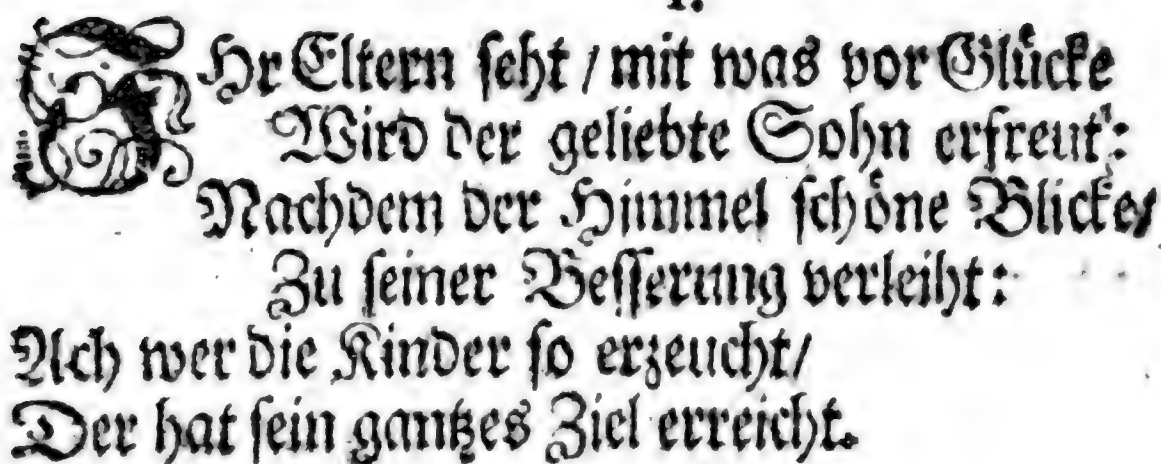 1.
IHr Eltern ſeht / mit was vor Gluͤcke
Wird der geliebte Sohn erfreut:
Nachdem der Himmel ſchoͤne Blicke/
Zu ſeiner Beſſerung verleiht:
Ach wer die Kinder ſo erzeucht/
Der hat ſein gantzes Ziel erreicht.